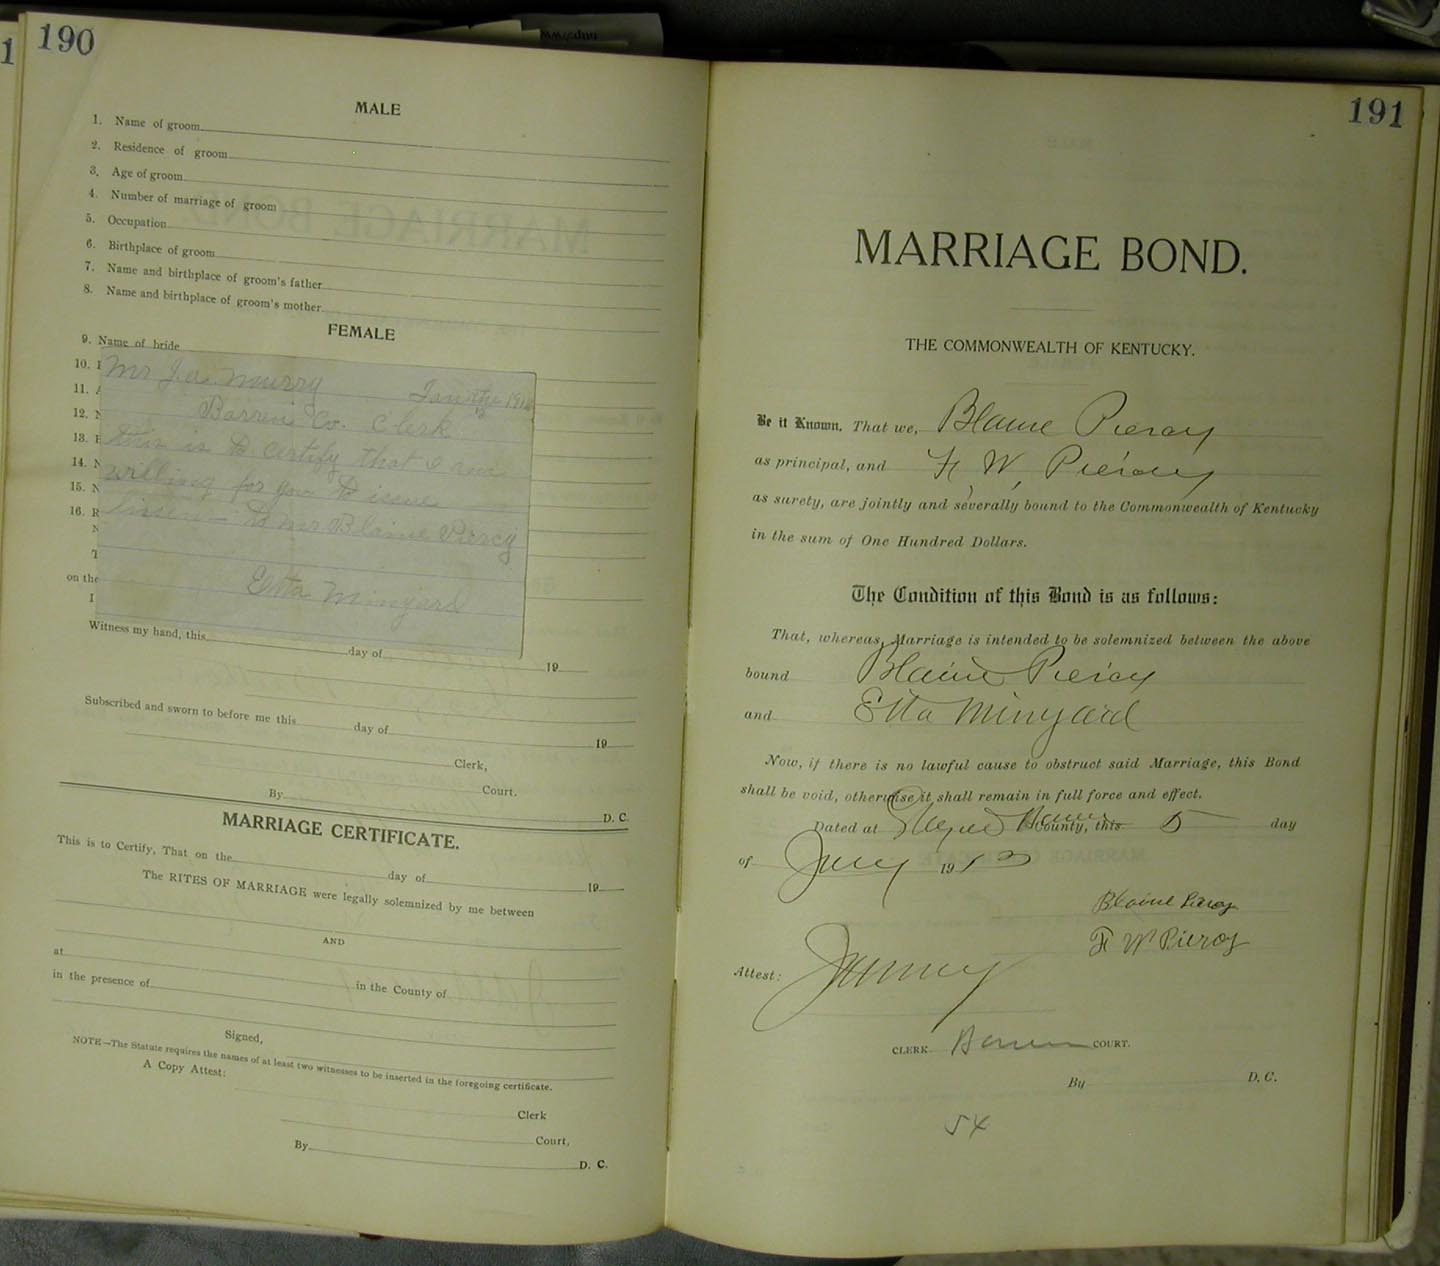 190
MALE
1. Name of groom
2. Residence of groom
3. Age of groom
4. Number of marriage of groom
5. Occupation
6. Birthplace of groom
7. Name and birthplace of groom's father
8. Name and birthplace of groom's mother
FEMALE
9. Name of bride
10.
11.
12.
13.
14.
15.
16.
Mr J.A. Murry
Barren Co. Clerk
this is to certify that I am
willing for you to issue
to mr Blaine Piercy
Etta Minyard
on the
I
Witness my hand, this day of 19
Subscribed and sworn to before me this day of 19
Clerk,
By Court.
D. C.
MARRIAGE CERTIFICATE.
This is to Certify, That on the day of 19
The RITES OF MARRIAGE were legally solemnized by me between
AND
at
in the presence of in the County of
Signed,
NOTE—The Statute requires the names of at least two witnesses to be inserted in the foregoing certificate.
A Copy Attest:
Clerk
By Court,
D. C.
191
MARRIAGE BOND.
THE COMMONWEALTH OF KENTUCKY.
Be it Known, That we, Blaine Piercy
as principal, and H W Piercy
as surety, are jointly and severally bound to the Commonwealth of Kentucky
in the sum of One Hundred Dollars.
The Condition of this Bond is as follows:
That, whereas, Marriage is intended to be solemnized between the above
bound Blaine Piercy
and Etta Minyard
Now, if there is no lawful cause to obstruct said Marriage, this Bond
shall be void, otherwise it shall remain in full force and effect.
Dated at County, this 5 day
of 191
Blaine Piercy
H W Piercy
Attest:
CLERK Barren COURT.
By D. C.
54